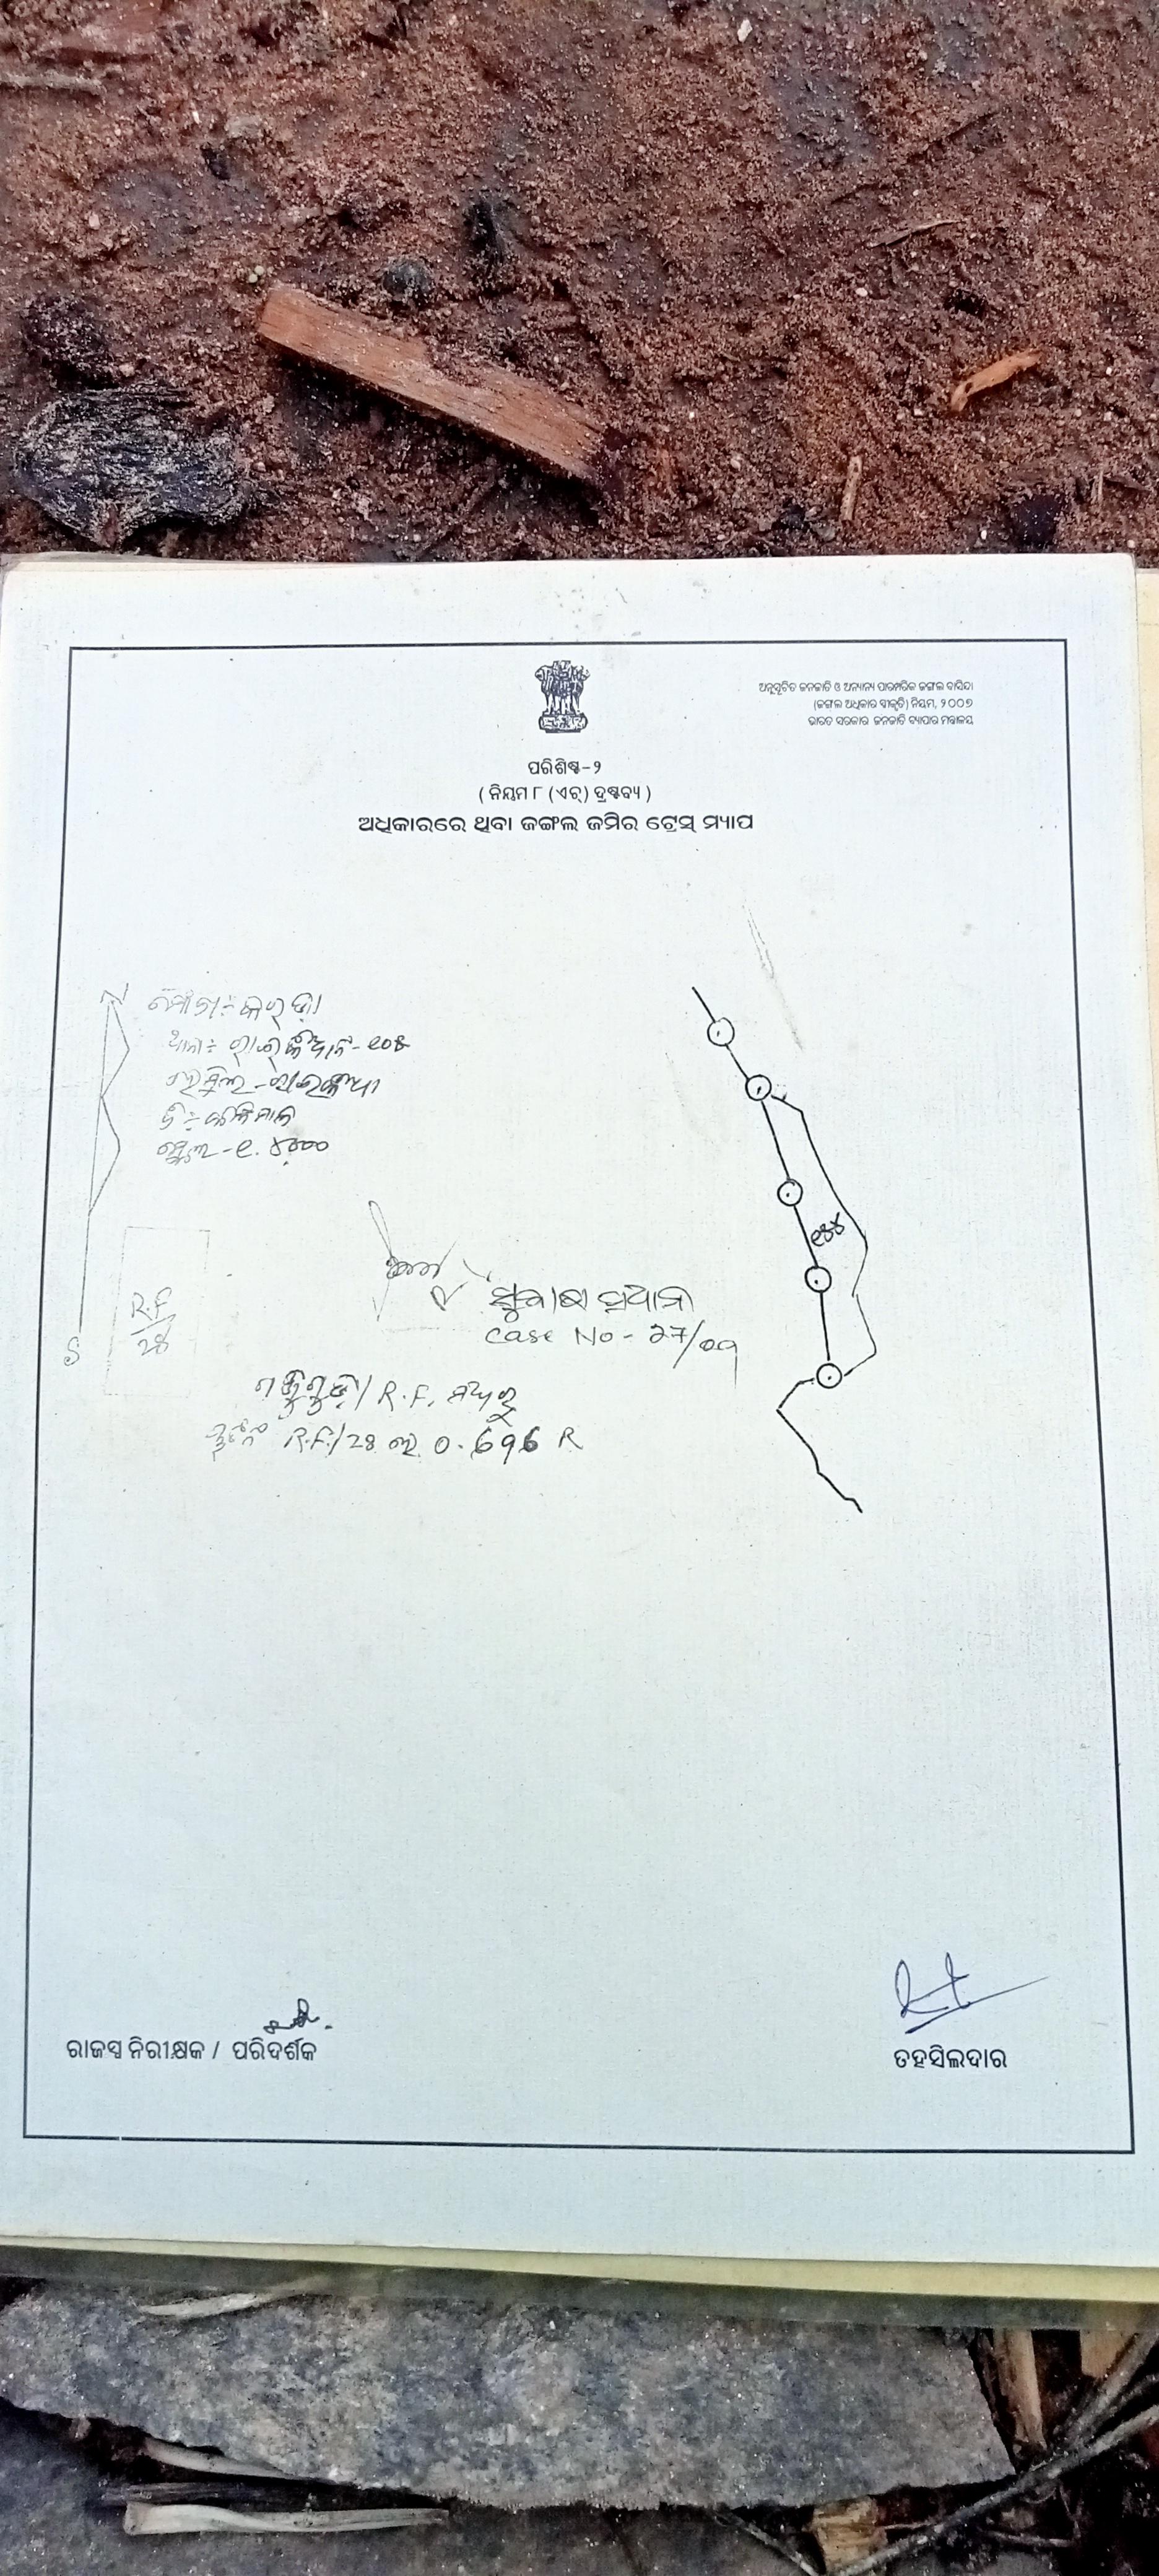 ଅନୁସୂଚିତ ଜନଜାତି ଓ ଅନ୍ୟାନ୍ୟ ପାରମ୍ପରିକ ଜଙ୍ଗଲ ବାସିନ୍ଦା
(ଜଙ୍ଗଲ ଅଧିକାର ସ୍ୱୀକୃତି) ନିୟମ, ୨୦୦୭
ଭାରତ ସରକାର ଜନଜାତି ବ୍ୟାପାର ମନ୍ତ୍ରାଳୟ
ପରିଶିଷ୍ଟ-୨
( ନିୟମ ୮ (ଏଚ୍) ଦ୍ରଷ୍ଟବ୍ୟ )
ଅଧିକାରରେ ଥିବା ଜଙ୍ଗଲ ଜମିର ଟ୍ରେସ୍ ମ୍ୟାପ
N
ମୌଜା:-
ଥାନା:- -୧୦୫
ତହସିଲ-
ଜି:-
ସ୍କେଲ-୧.୪୦୦୦
S
R.F
28
ପ୍ରଧାନ
Case No - 27/09
R.F. ମଧ୍ୟରୁ
R.F/28 ରେ 0.696 R
ରାଜସ୍ୱ ନିରୀକ୍ଷକ / ପରିଦର୍ଶକ
ତହସିଲଦାର